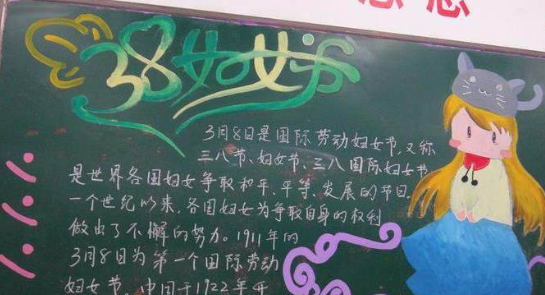 38妇女节
3月8日是国际劳动妇女节,又称
三八节、妇女节、三八国际妇女节
是世界各国妇女争取和平、平等、发展的节日。
一个世纪以来,各国妇女为争取自身的权利
做出了不懈的努力。1911年的
3月8日为第一个国际劳动
妇女节。中国于1922年开